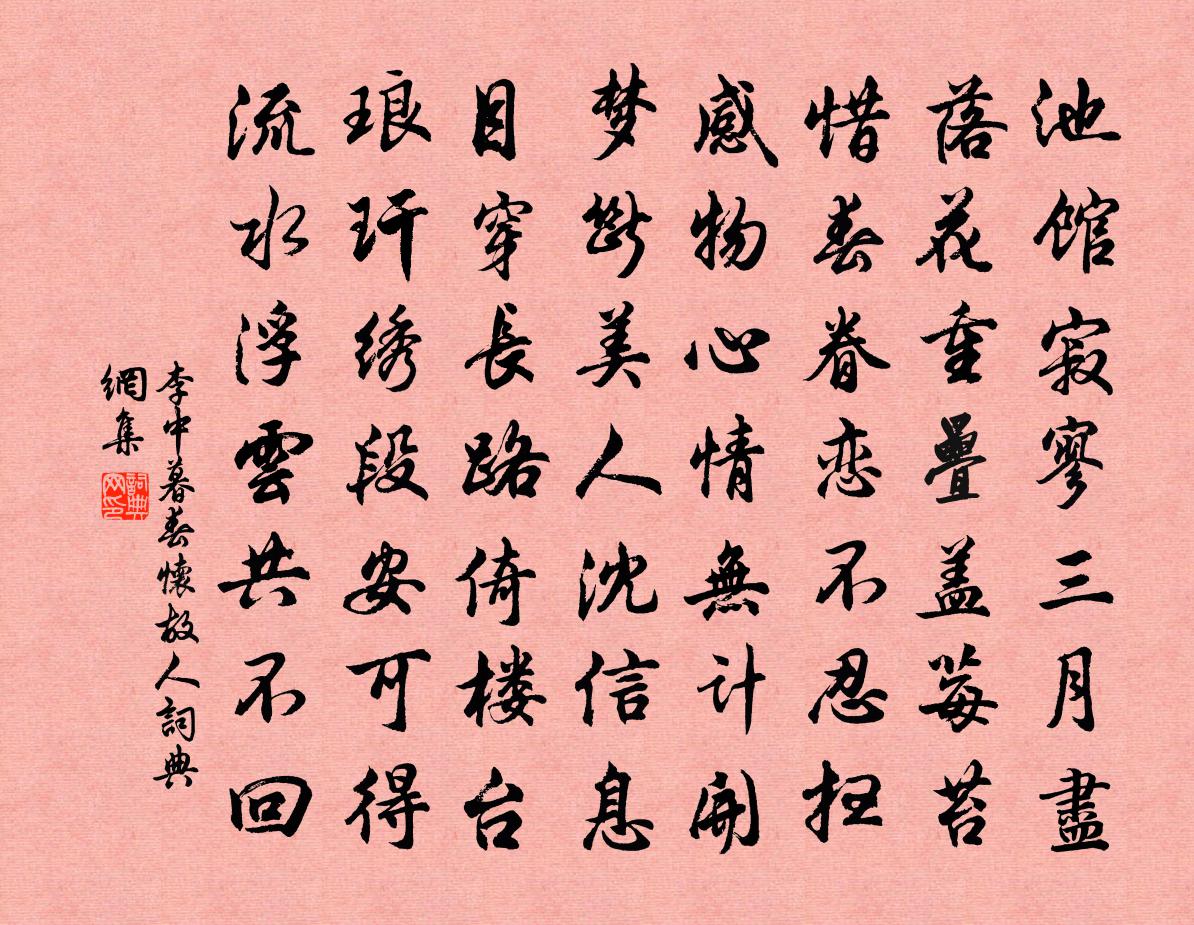 池馆寂寥三月盡
落花重疊盖莓苔
惜春眷恋不忍扫
感物心情無计開
梦断美人沈信息
目穿長路倚楼台
琅玕绣段安可得
流水浮雲共不回
李中暮春懷故人詞典
網集
詞典网印